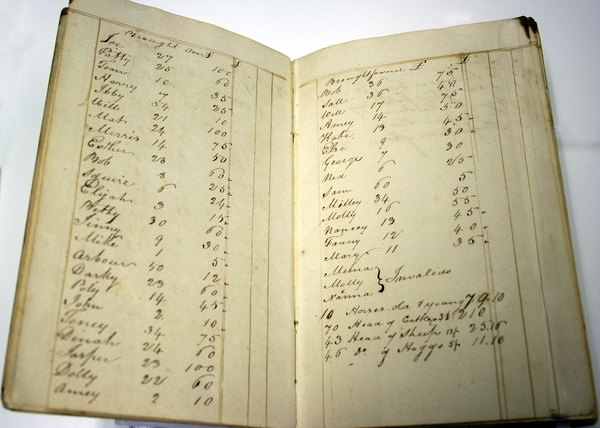 Brought Over £
Joe 27 100
Patty 25 60
Tom 10 35
Harry 7 25
Ibby 54 10
Will 21 100
Mat 24 75
Morris 14 50
Esther 23 60
Bob 8 25
Squire 6 24
Elijah 3 15
Betty 30 60
Jinny 9 30
Mike 1 5
Arbour 50 12
Darky 23 60
Poly 14 45
John 2 10
Toney 34 75
Dinah 24 60
Jasper 23 100
Dolly 22 60
Amey 2 10
Brought forward £
Bob 36 75
Sall 36 40
Will 17 75
Amey 14 50
Kate 13 45
9 30
George 7 30
Ned 6 25
Sam 60 5
Milley 34 50
Molly 16 55
Nancey 13 45
Fanny 12 40
Mary 11 35
Mima
Molly } Invalids
Nanna
10 Horses old & young 79.10
70 Head of 210
43 Head of Sheep 12/ 25.16
46 Do of Hoggs 5/ 11.10